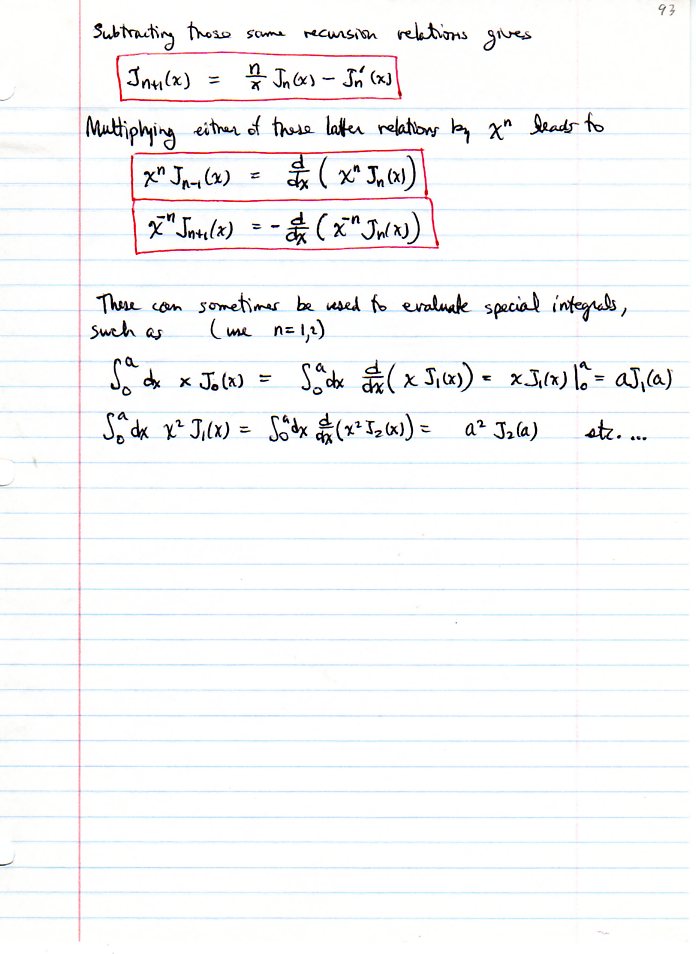 93
Subtracting those same recursion relations gives
J_{n+1}(x) = n/x J_n(x) - J_n'(x)
Multiplying either of these latter relations by x^n leads to
x^n J_{n-1}(x) = d/dx ( x^n J_n(x) )
x^{-n} J_{n+1}(x) = - d/dx ( x^{-n} J_n(x) )
These can sometimes be used to evaluate special integrals,
such as (use n=1,2)
∫_0^a dx x J_0(x) = ∫_0^a dx d/dx ( x J_1(x) ) = x J_1(x) |_0^a = a J_1(a)
∫_0^a dx x^2 J_1(x) = ∫_0^a dx d/dx ( x^2 J_2(x) ) = a^2 J_2(a) etc. ...